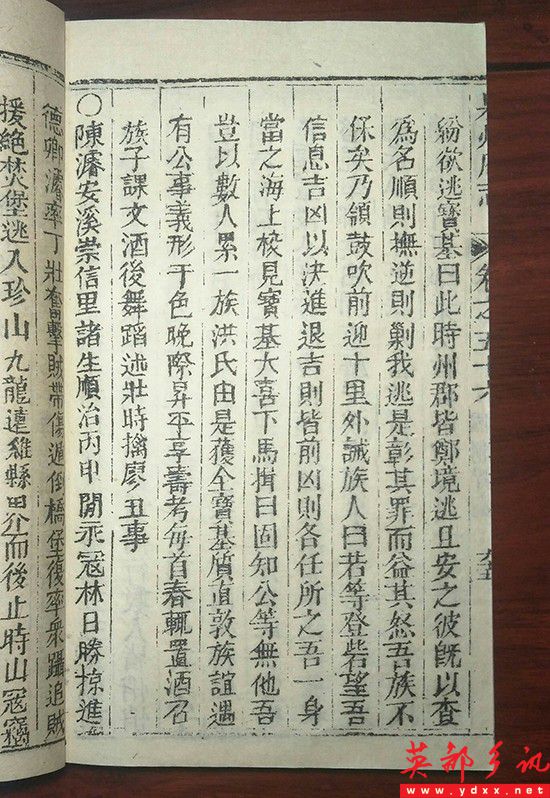 泉州府志 卷之五十六
紛欲逃寶基曰此時州郡皆鄭境逃且安之彼旣以查
爲名順則撫逆則剿我逃是彰其罪而益其怒吾族不
保矣乃領鼓吹前迎十里外誡族人曰若等登砦望吾
信息吉凶以決進退吉則皆前凶則各任所之吾一身
當之海上校見寶基大喜下馬揖曰固知公等無他吾
豈以數人累一族洪氏由是獲全寶基質直敦族誼遇
有公事義形于色晚際昇平享壽考每首春輒置酒召
族子課文酒後舞蹈述壯時擒廖丑事
○陳濬安溪崇信里諸生順治丙申間永寇林日勝掠進
德卿濬率丁壯奮擊賊帶傷遁倒橋堡復率衆躡追賊
援絕焚堡逃入珍山九龍連雒縣界而後止時山寇竊
英都乡讯
www.ydxx.net